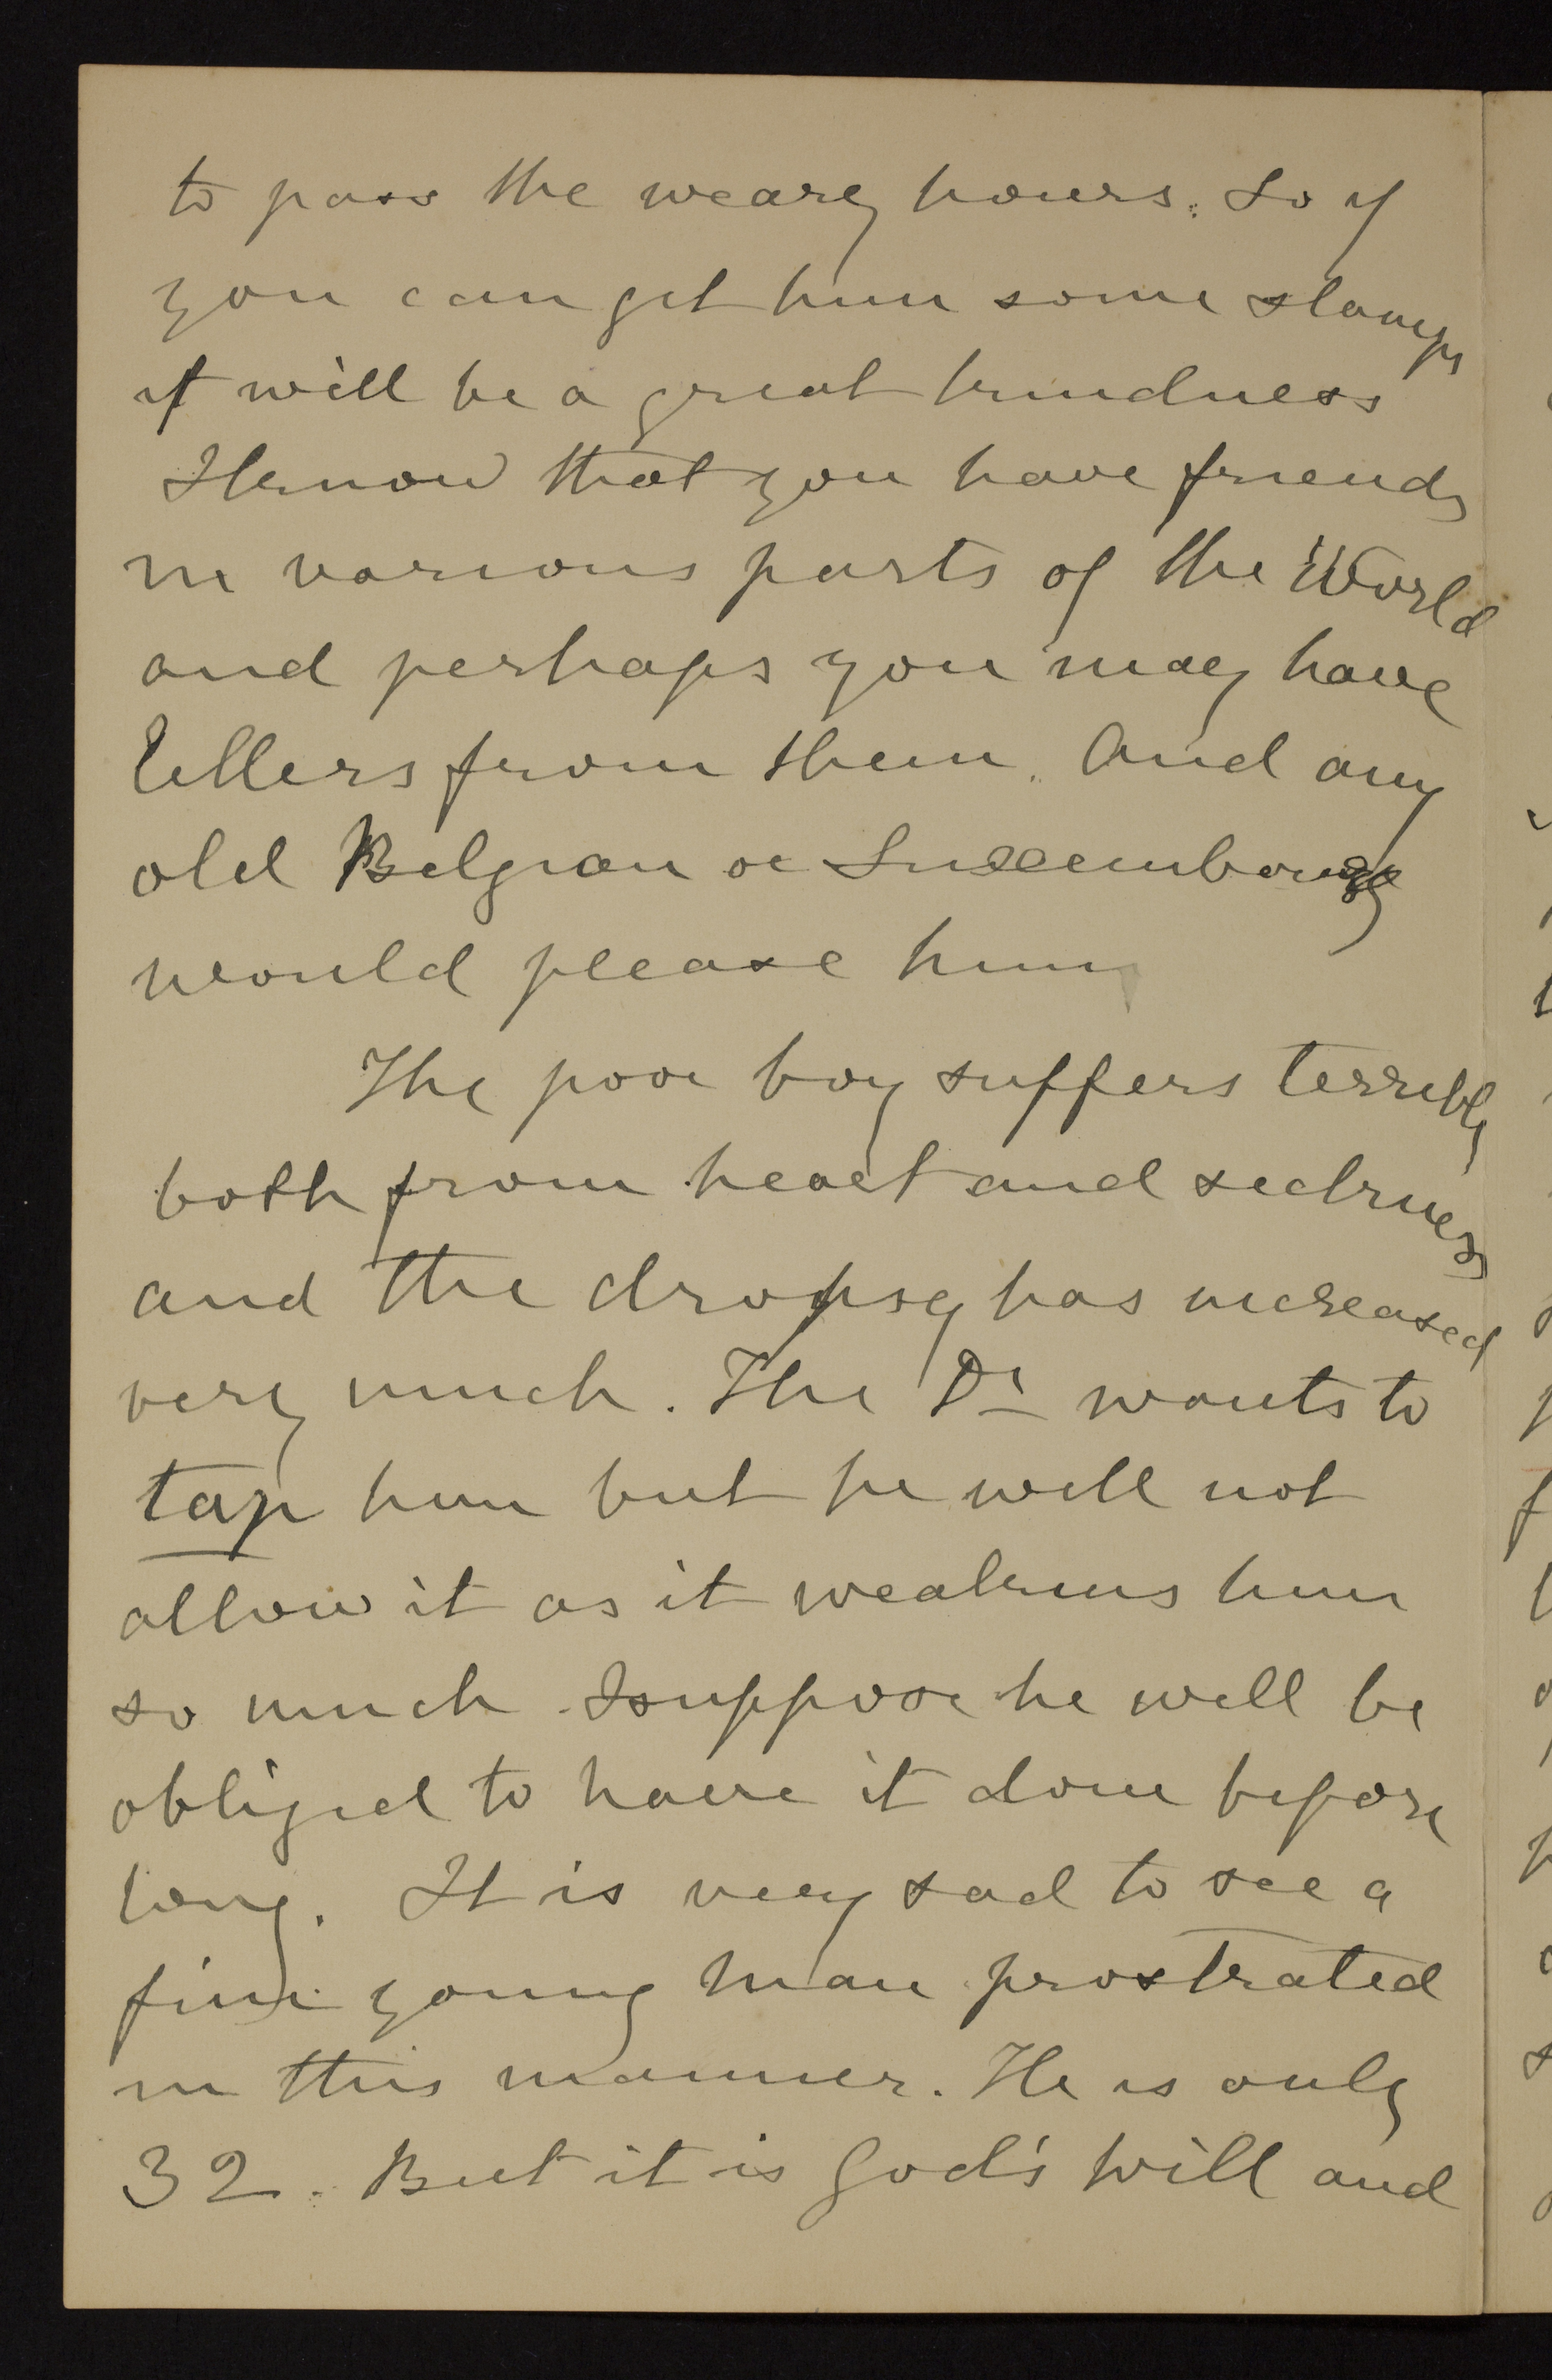 to pass the weary hours. So if
you can get him some stamps
it will be a great kindness
I know that you have friends
in various parts of the World
and perhaps you may have
letters from them. And any
old Belgian or Luxembourg
would please him
The poor boy suffers terribly
both from heart and sickness
and the dropsy has increased
very much. The Dr wants to
tap him but he will not
allow it as it weakens him
so much. I suppose he will be
obliged to have it done before
long. It is very sad to see a
fine young man prostrated
in this manner. He is only
32. But it is God's will and